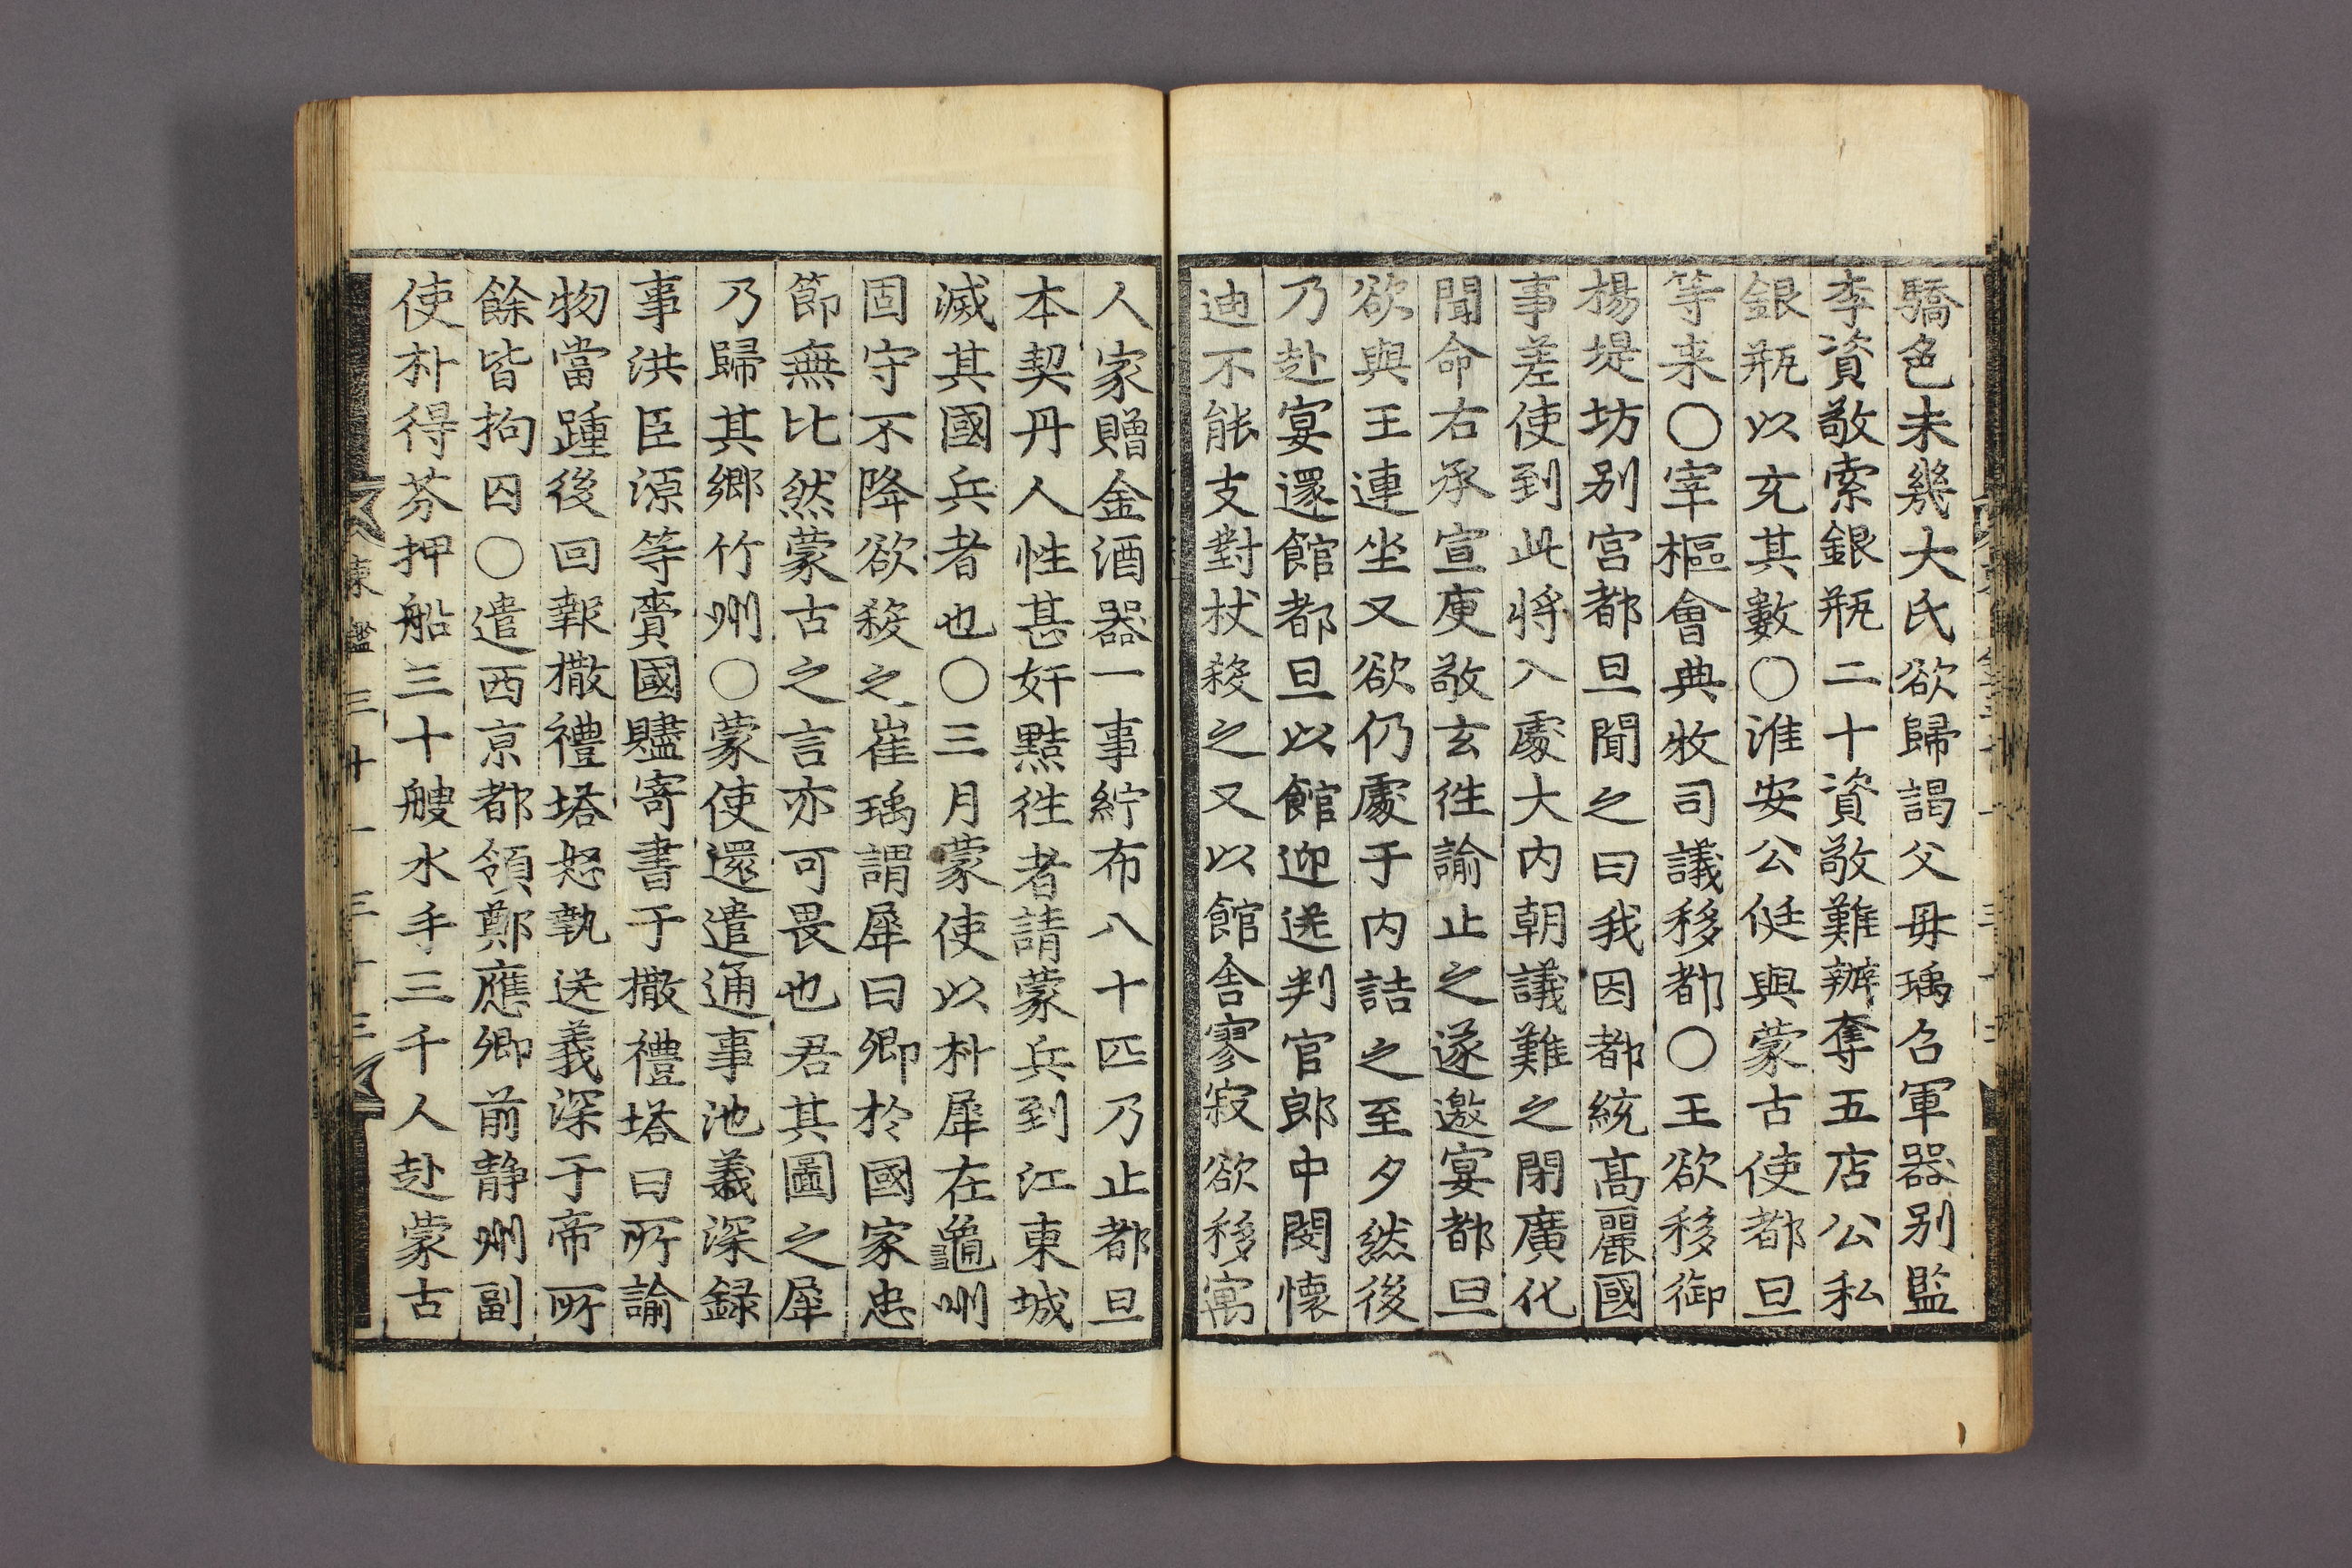 驕色未幾大氏欲歸謁父毋瑀召軍器别監
李資敬索銀瓶二十資敬難辦奪五店公私
銀瓶以充其數○淮安公侹與蒙古使都旦
等来○宰樞會典牧司議移都○王欲移御
楊堤坊别宫都旦聞之曰我因都統髙麗國
事差使到此将入處大内朝議難之閉廣化
聞命右承宣庾敬玄徃諭止之遂邀宴都旦
欲與王連坐又欲仍處于内詰之至夕然後
乃赴宴還館都旦以館迎送判官郎中閔懷
迪不能支對杖殺之又以館舍寥寂欲移寓
人家贈金酒器一事紵布八十匹乃止都旦
本契丹人性甚奸黠徃者請蒙兵到江東城
滅其國兵者也○三月蒙使以朴犀在龜州
固守不降欲殺之崔瑀謂犀曰卿於國家忠
節無比然蒙古之言亦可畏也君其圖之犀
乃歸其鄉竹州○蒙使還遣通事池義深録
事洪臣源等賷國贐寄書于撒禮塔曰所諭
物當踵後回報撒禮塔怒執送義深于帝所
餘皆拘囚○遣西京都領鄭應卿前静州副
使朴得芬押船三十艘水手三千人赴蒙古
鑑三十一 三十三